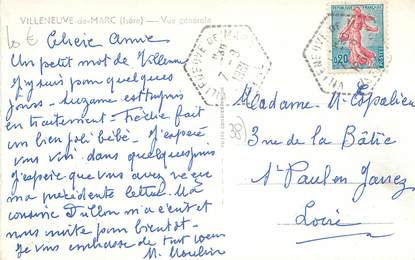 VILLENEUVE-de-MARC (Isère) — Vue générale
10€ Chère Amie
Un petit mot de Villeneuve
J'y suis pour quelques
jours. Suzanne est
en traitement. Frédéric fait
un bien joli bébé. J'espère
vous voir dans quelques jours
J'espère que vous avez reçu
ma précédente lettre. Ma
cousine Dullon m'a écrit et
nous invite pour bientôt.
Je vous embrasse de tout coeur
M. Moulin
VILLENEUVE DE MARC
7 -3
1961
0,20
38
Madame
3 rue de la Bâtie
St Paul en Jarrez
Loire